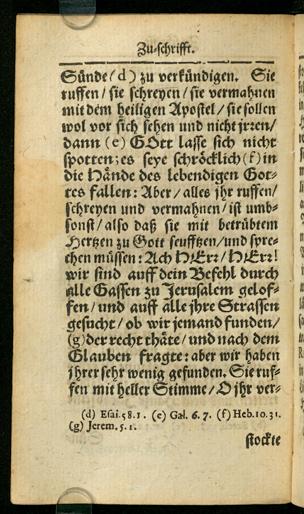 Zu-schrifft.
Sünde (d) zu verkündigen. Sie
ruffen / sie schreyen / sie vermahnen
mit dem heiligen Apostel / sie sollen
wol vor sich sehen und nicht jrren /
dann (e) GOtt lasse sich nicht
spotten; es seye schröcklich (f) in
die Hände des lebendigen Got-
tes fallen: Aber / alles jhr ruffen /
schreyen und vermahnen / ist umb-
sonst / also daß sie mit betrübtem
Hertzen zu Gott seufftzen / und spre-
chen müssen: Ach HErr / HErr!
wir sind auff dein Befehl durch
alle Gassen zu Jerusalem geloff-
fen / und auff alle jhre Strassen
gesucht / ob wir jemand funden /
(g) der recht thäte / und nach dem
Glauben fragte: aber wir haben
jhrer sehr wenig gefunden. Sie ruf-
fen mit heller Stimme / O jhr ver-
(d) Esai. 58. 1. (e) Gal. 6. 7. (f) Heb. 10. 31.
(g) Jerem. 5. 1.
stockte